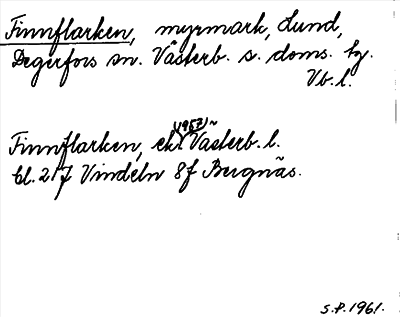 Finnflarken, myrmark, Lund,
Degerfors sn. Västerb. s. doms. hg.
Vb. l.
(1957)
Finnflarken, ek. Västerb. l.
bl. 217 Vindeln 8f Bergnäs.
S.P. 1961.